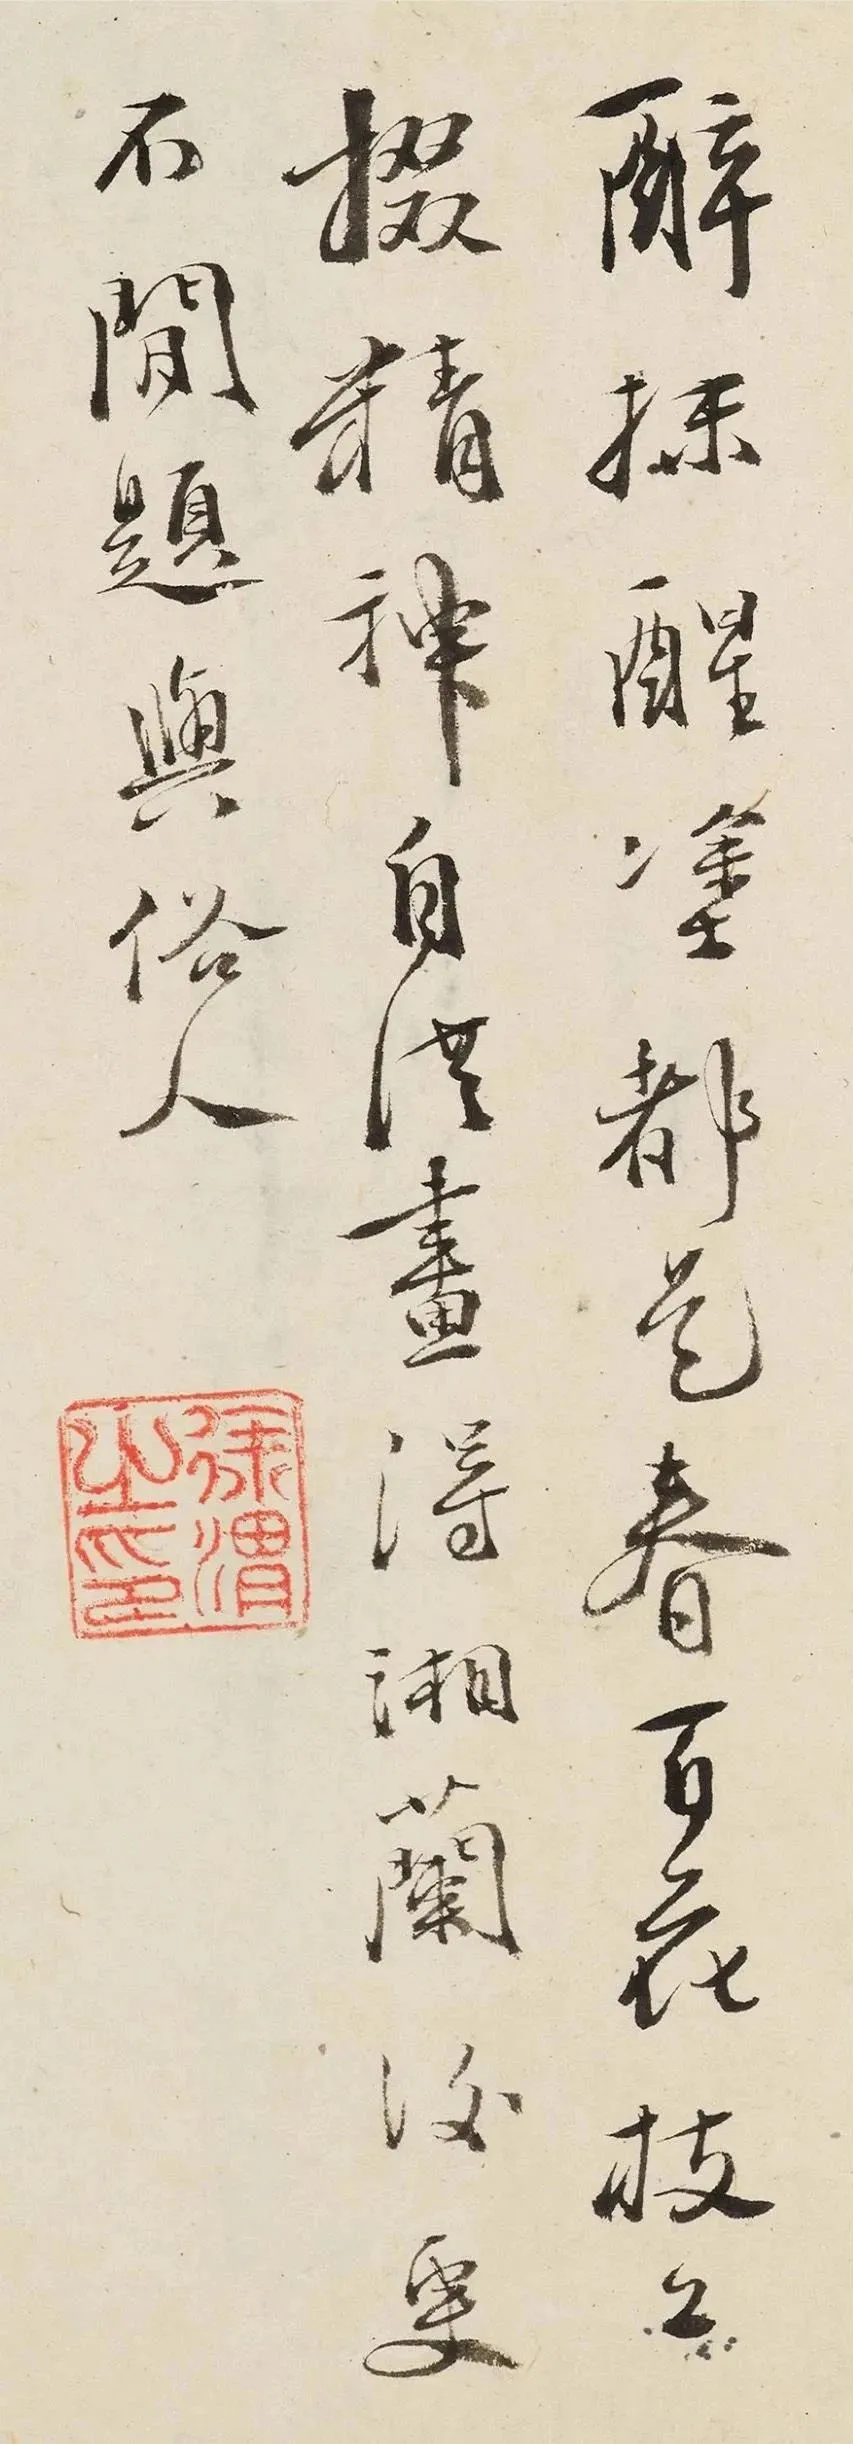 醉抹醒塗都是春百花枝上
掇精神自從畫得湘蘭後更
不閒題與俗人
徐渭之印